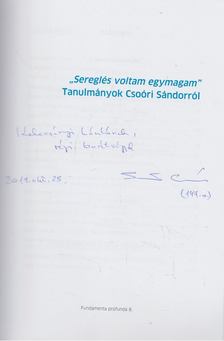 „Sereglés voltam egymagam”
Tanulmányok Csoóri Sándorról
régi barátsággal
2019. okt. 25.
(144. o.)
Fundamenta profunda 8.